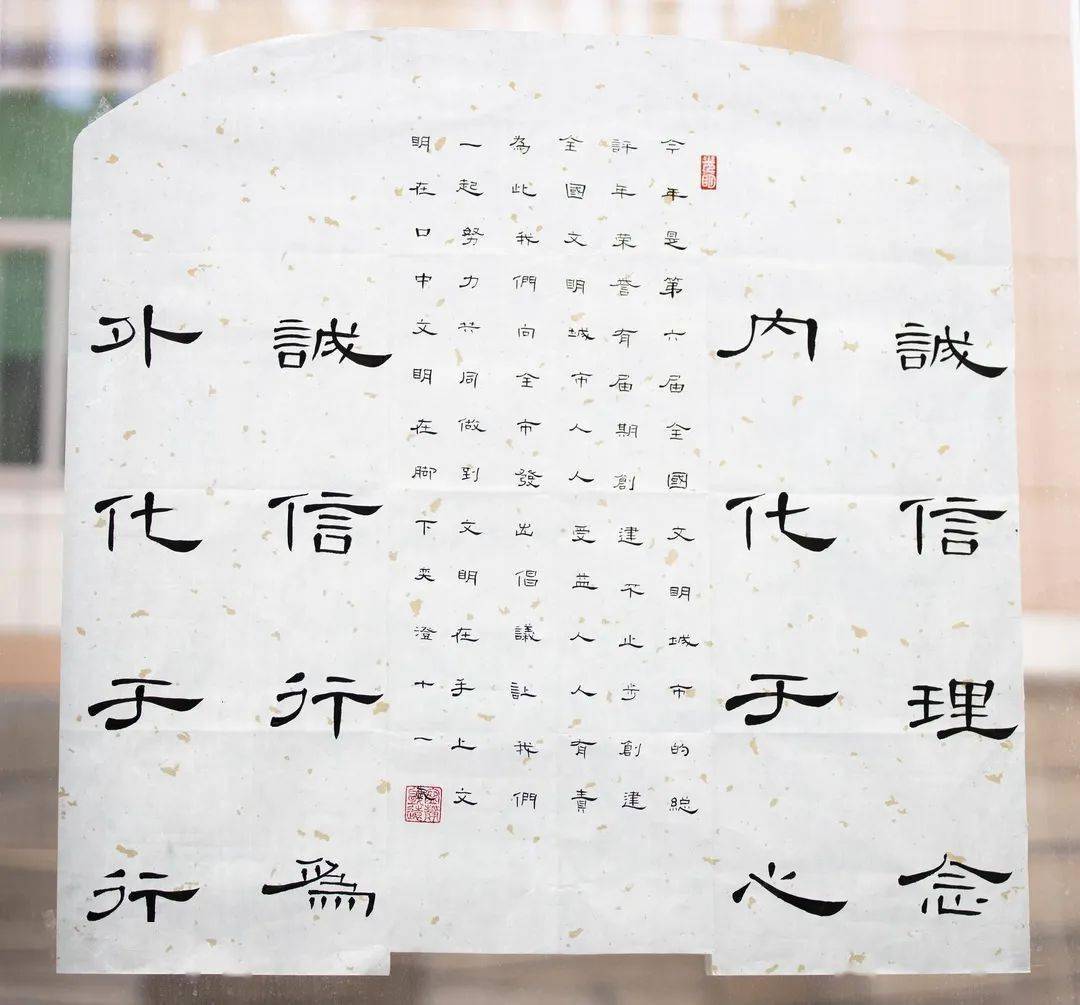 誠信理念
内化于心
今年是第六届全國文明城市的総
評年荣誉有届期創建不止步創建
全國文明城市人人受益人人有責
為此我們向全市發出倡議让我們
一起努力共同做到文明在手上文
明在口中文明在脚下奕澄十一
誠信行爲
外化于行